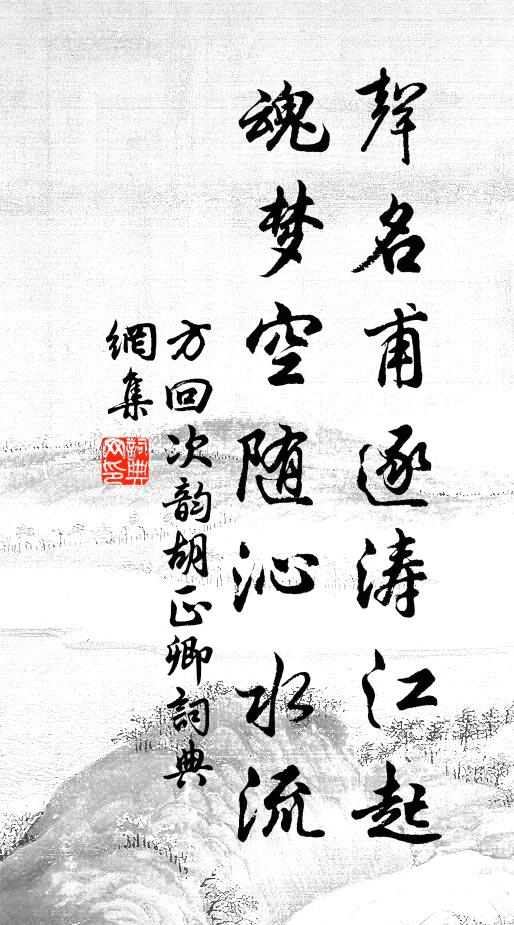 聲名甫逐涛江起
魂梦空随沁水流
方回次韵胡正卿詞典
網集
詞典网印